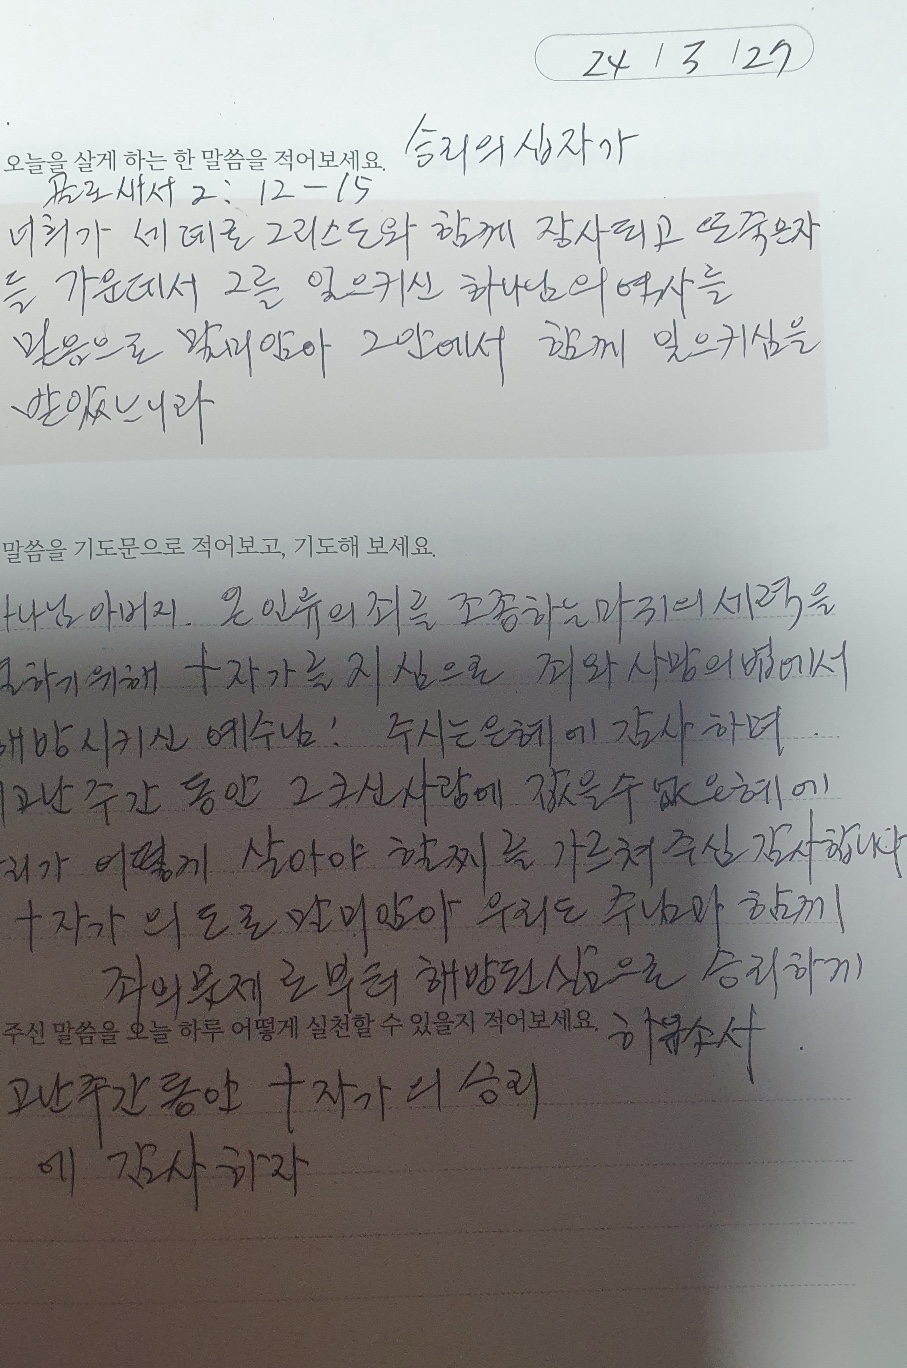 24 / 3 / 27
오늘을 살게 하는 한 말씀을 적어보세요. 승리의 십자가
골로새서 2: 12 - 15
너희가 세례로 그리스도와 함께 장사되고 또 죽은자
들 가운데서 그를 일으키신 하나님의 역사를
믿음으로 말미암아 그안에서 함께 일으키심을
받았느니라
말씀을 기도문으로 적어보고, 기도해 보세요.
나님 아버지. 온 인류의 죄를 조종하는 마귀의 세력을
하기위해 十자가를 지심으로 죄와 사망의 법에서
해방시키신 예수님! 주시는 은혜에 감사하며
고난 주간 동안 그 크신사랑에 갚을수 없는 은혜에
리가 어떻게 살아야 할찌를 가르쳐 주심 감사합니다
十자가의 도로 말미암아 우리도 주님과 함께
죄의 문제로부터 해방된 심으로 승리하게
주신 말씀을 오늘 하루 어떻게 실천할 수 있을지 적어보세요. 하옵소서
고난주간 동안 十자가의 승리
에 감사하자